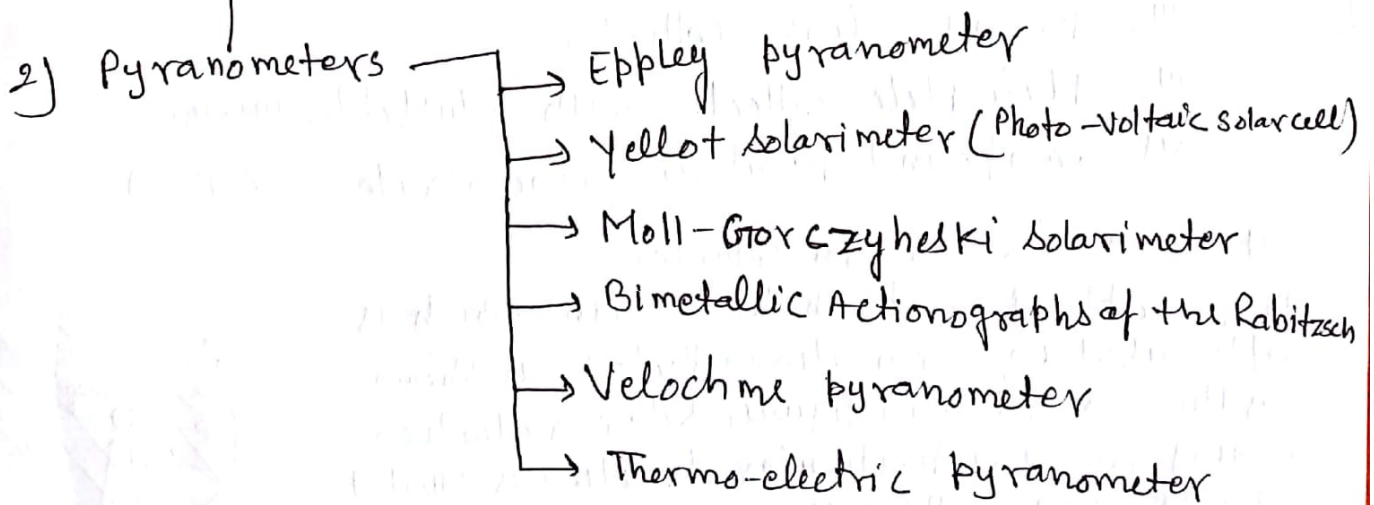 2) Pyranometers
Eppley pyranometer
Yellot solarimeter (Photo-Voltaic solar cell)
Moll-Gorczyheski solarimeter
Bimetallic Actionographs of the Rabitzsch
Velochme pyranometer
Thermo-electric pyranometer